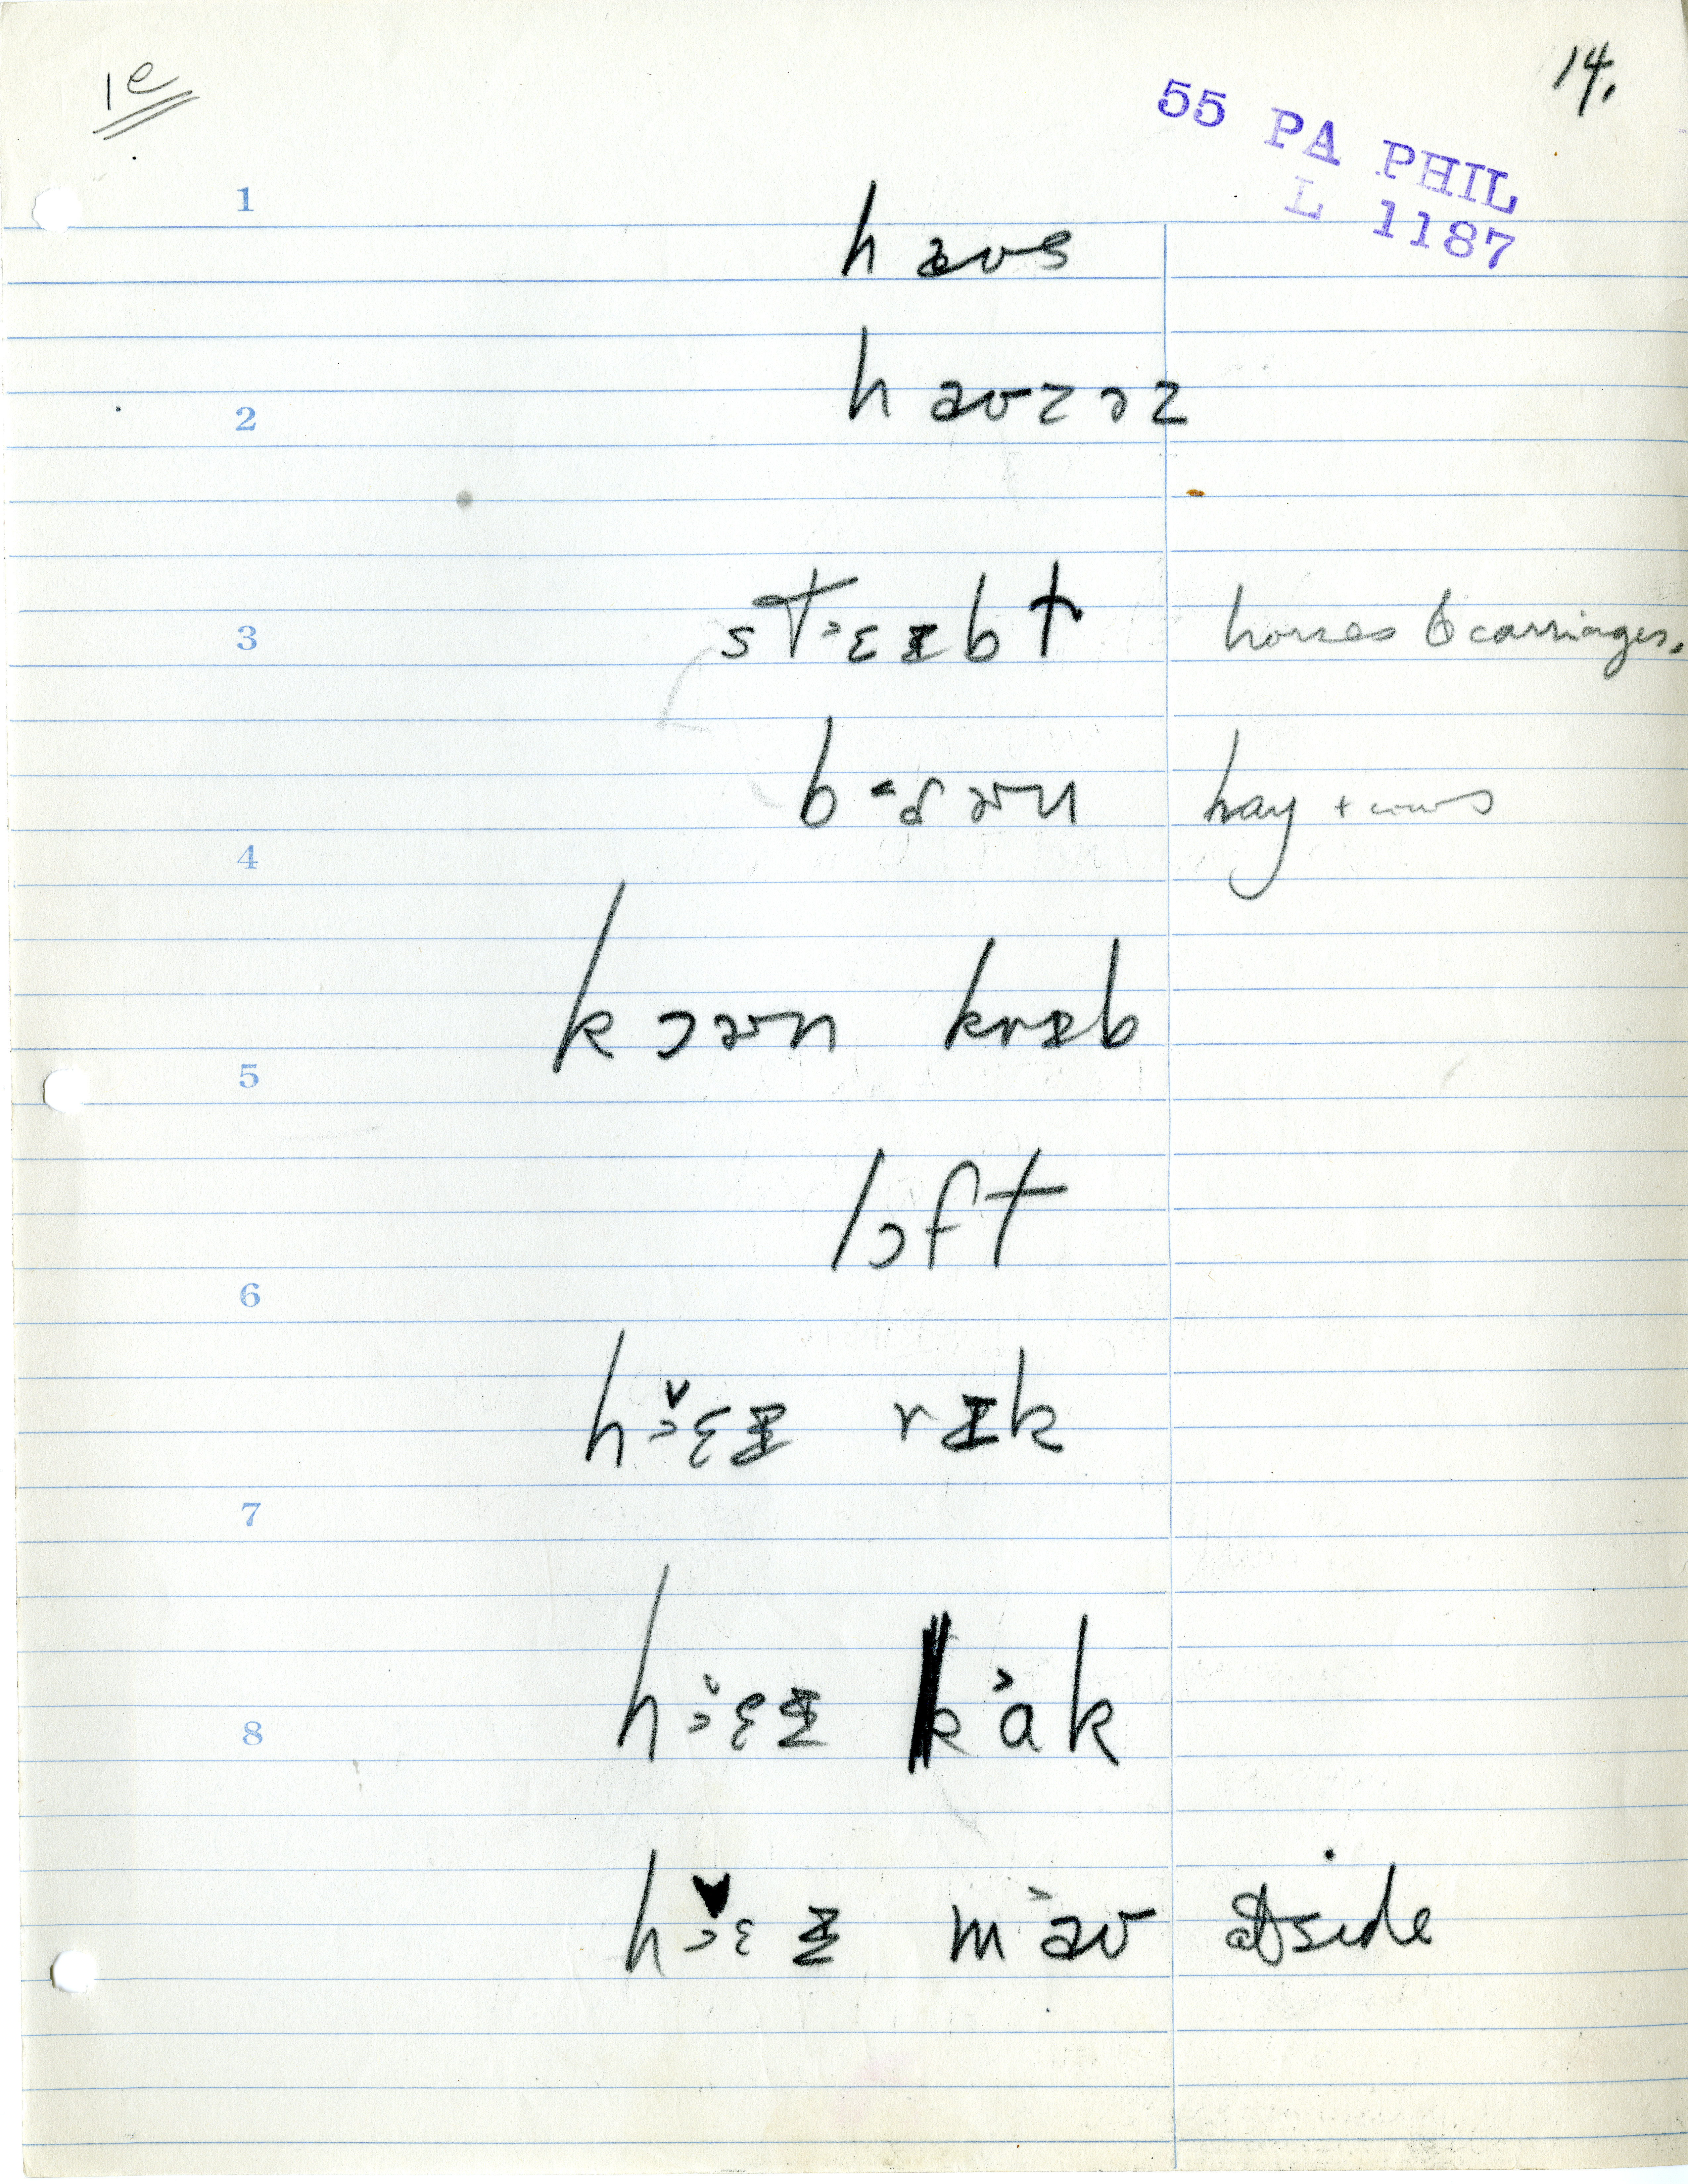 1e
14.
55 PA PHIL
L 1187
1
haʊs
2
haʊzəz
3
stˈɛɪbɫ horses & carriages.
b˂ɒɚn hay + cows
4
kɔɚn krɪb
5
lɔft
6
hɛɪ rɪk
7
hɛɪ kɑk
8
hɛɪ maʊ